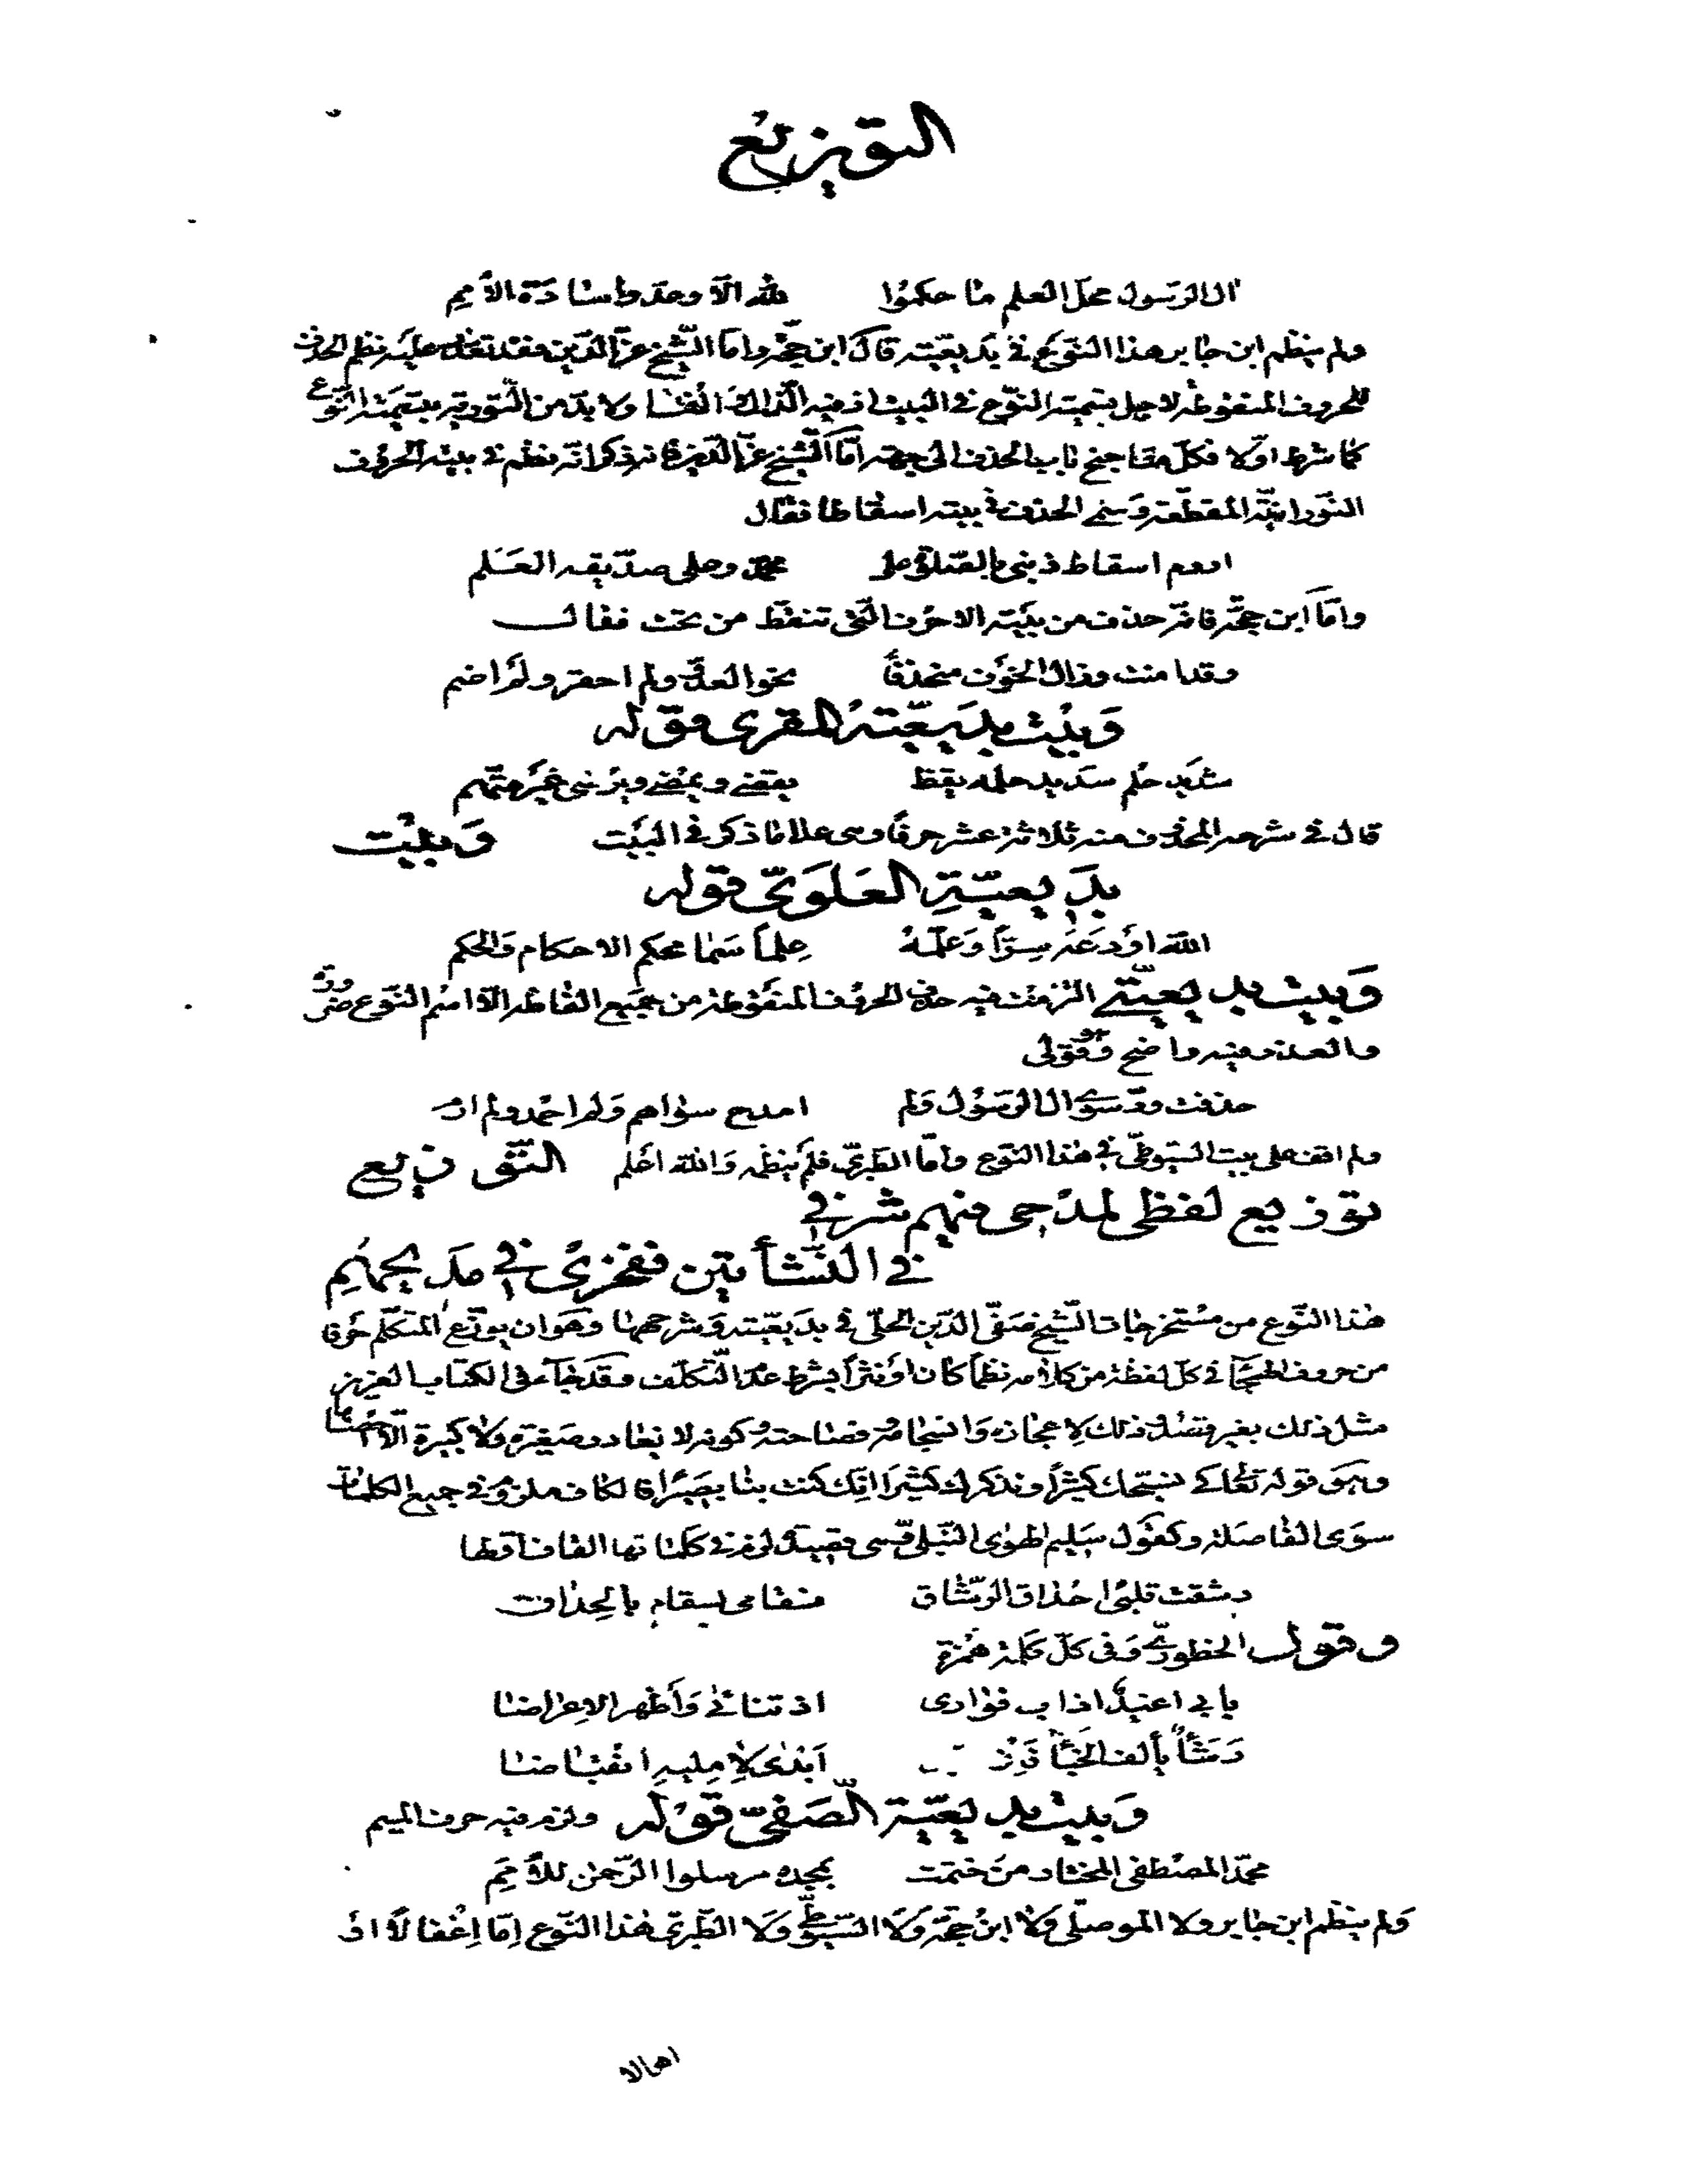 التوزيع
آل الرسول محل العلم ما حكموا لله الا وعدوا سادة الأمم
ولم ينظم ابن جابر هذا النوع في بديعيته قال ابن حجة واما الشيخ عز الدين فقد تعذر عليه نظم الحذف
للحروف المنقوطة لاجل تسمية النوع في البيت اذ فيه الذال والفا ولا بد من التورية بتسمية النوع
كما شرط اولا فكل منها جنح باب الحذف الى جهة اما الشيخ عز الدين فانه ذكر انه نظم في بيته الحروف
النورانية المقطعة وسمى الحذف في بيته اسقاطا فقال
اروم اسقاط ذنبي بالصلوة على محمد وعلى صديقه العلم
واما ابن حجة فانه حذف من بيته الاحرف التي تنقط من تحت فقال
وقد امنت وزال الخوف منحذفا نحو العدو ولم احقر ولم اضم
وبيت بديعية المقري قوله
شديد حلم سديد حلمه يقظ يقضي ويمضي ويرضي غير متهم
قال في شرحه المحذوف منه ثلاثة عشر حرفا وهي علا ما ذكر في البيت وبيت
بديعية العلوي قوله
الله اودعه سرا وعلمه علما سما محكم الاحكام والحكم
وبيت بديعيتي التزمت فيه حذف الحروف المنقوطة من جميع الفاظه الا اسم النوع ضرورة
والعذر فيه واضح وهو قولي
حذفت ود سوى آل الرسول ولم امدح سواهم ولم احمد ولم ارم
ولم اقف على بيت السيوطي في هذا النوع واما الطبري فلم ينظمه والله اعلم التوزيع
توزيع لفظي لمدحي فيهم شرفي
في النشأتين ففخري في مديحهم
هذا النوع من مستخرجات الشيخ صفي الدين الحلي في بديعيته وشرحها وهو ان يوزع المتكلم حرفا
من حروف الهجا في كل لفظة من كلامه نظما كان او نثرا بشرط عدم التكلف وقد جاء في الكتاب العزيز
مثل ذلك بغير قصد ذلك لاعجازه وانسجامه وفصاحته وكونه لا يغادر صغيرة ولا كبيرة الا احصاها
وهو قوله تعالى كي نسبحك كثيرا ونذكرك كثيرا انك كنت بنا بصيرا فالكاف ملزوم في جميع الكلمات
سوى الفاصلة وكقول سليم الهوى النيلي في قصيدة لزم في كلماتها القاف اولها
رشقت قلبي احداق الرشاق فشفائي لسقام بالحداق
وقول الحظوري وفي كل كلمة همزة
بابي اغيد اذاب فؤادي اذ تناءى وأظهر الاعراضا
رشأ يألف الجفا فاذ ابدى لآمليه انقباضا
وبيت بديعية الصفي قوله ولزم فيه حرف الميم
محمد المصطفى المختار من ختمت بمجده مرسلوا الرحمن للأمم
ولم ينظم ابن جابر ولا الموصلي ولا ابن حجة ولا السيوطي ولا الطبري هذا النوع اما اغفالا او
اهمالا